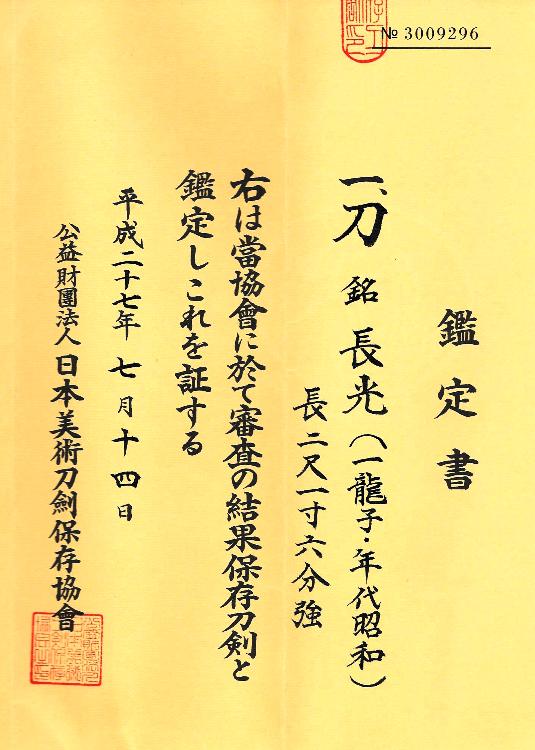 № 3009296
鑑定書
一、刀 銘 長光(一龍子・年代昭和)
長二尺一寸六分強
右は當協會に於て審査の結果保存刀剣と
鑑定しこれを証する
平成二十七年七月十四日
公益財團法人日本美術刀劍保存協會